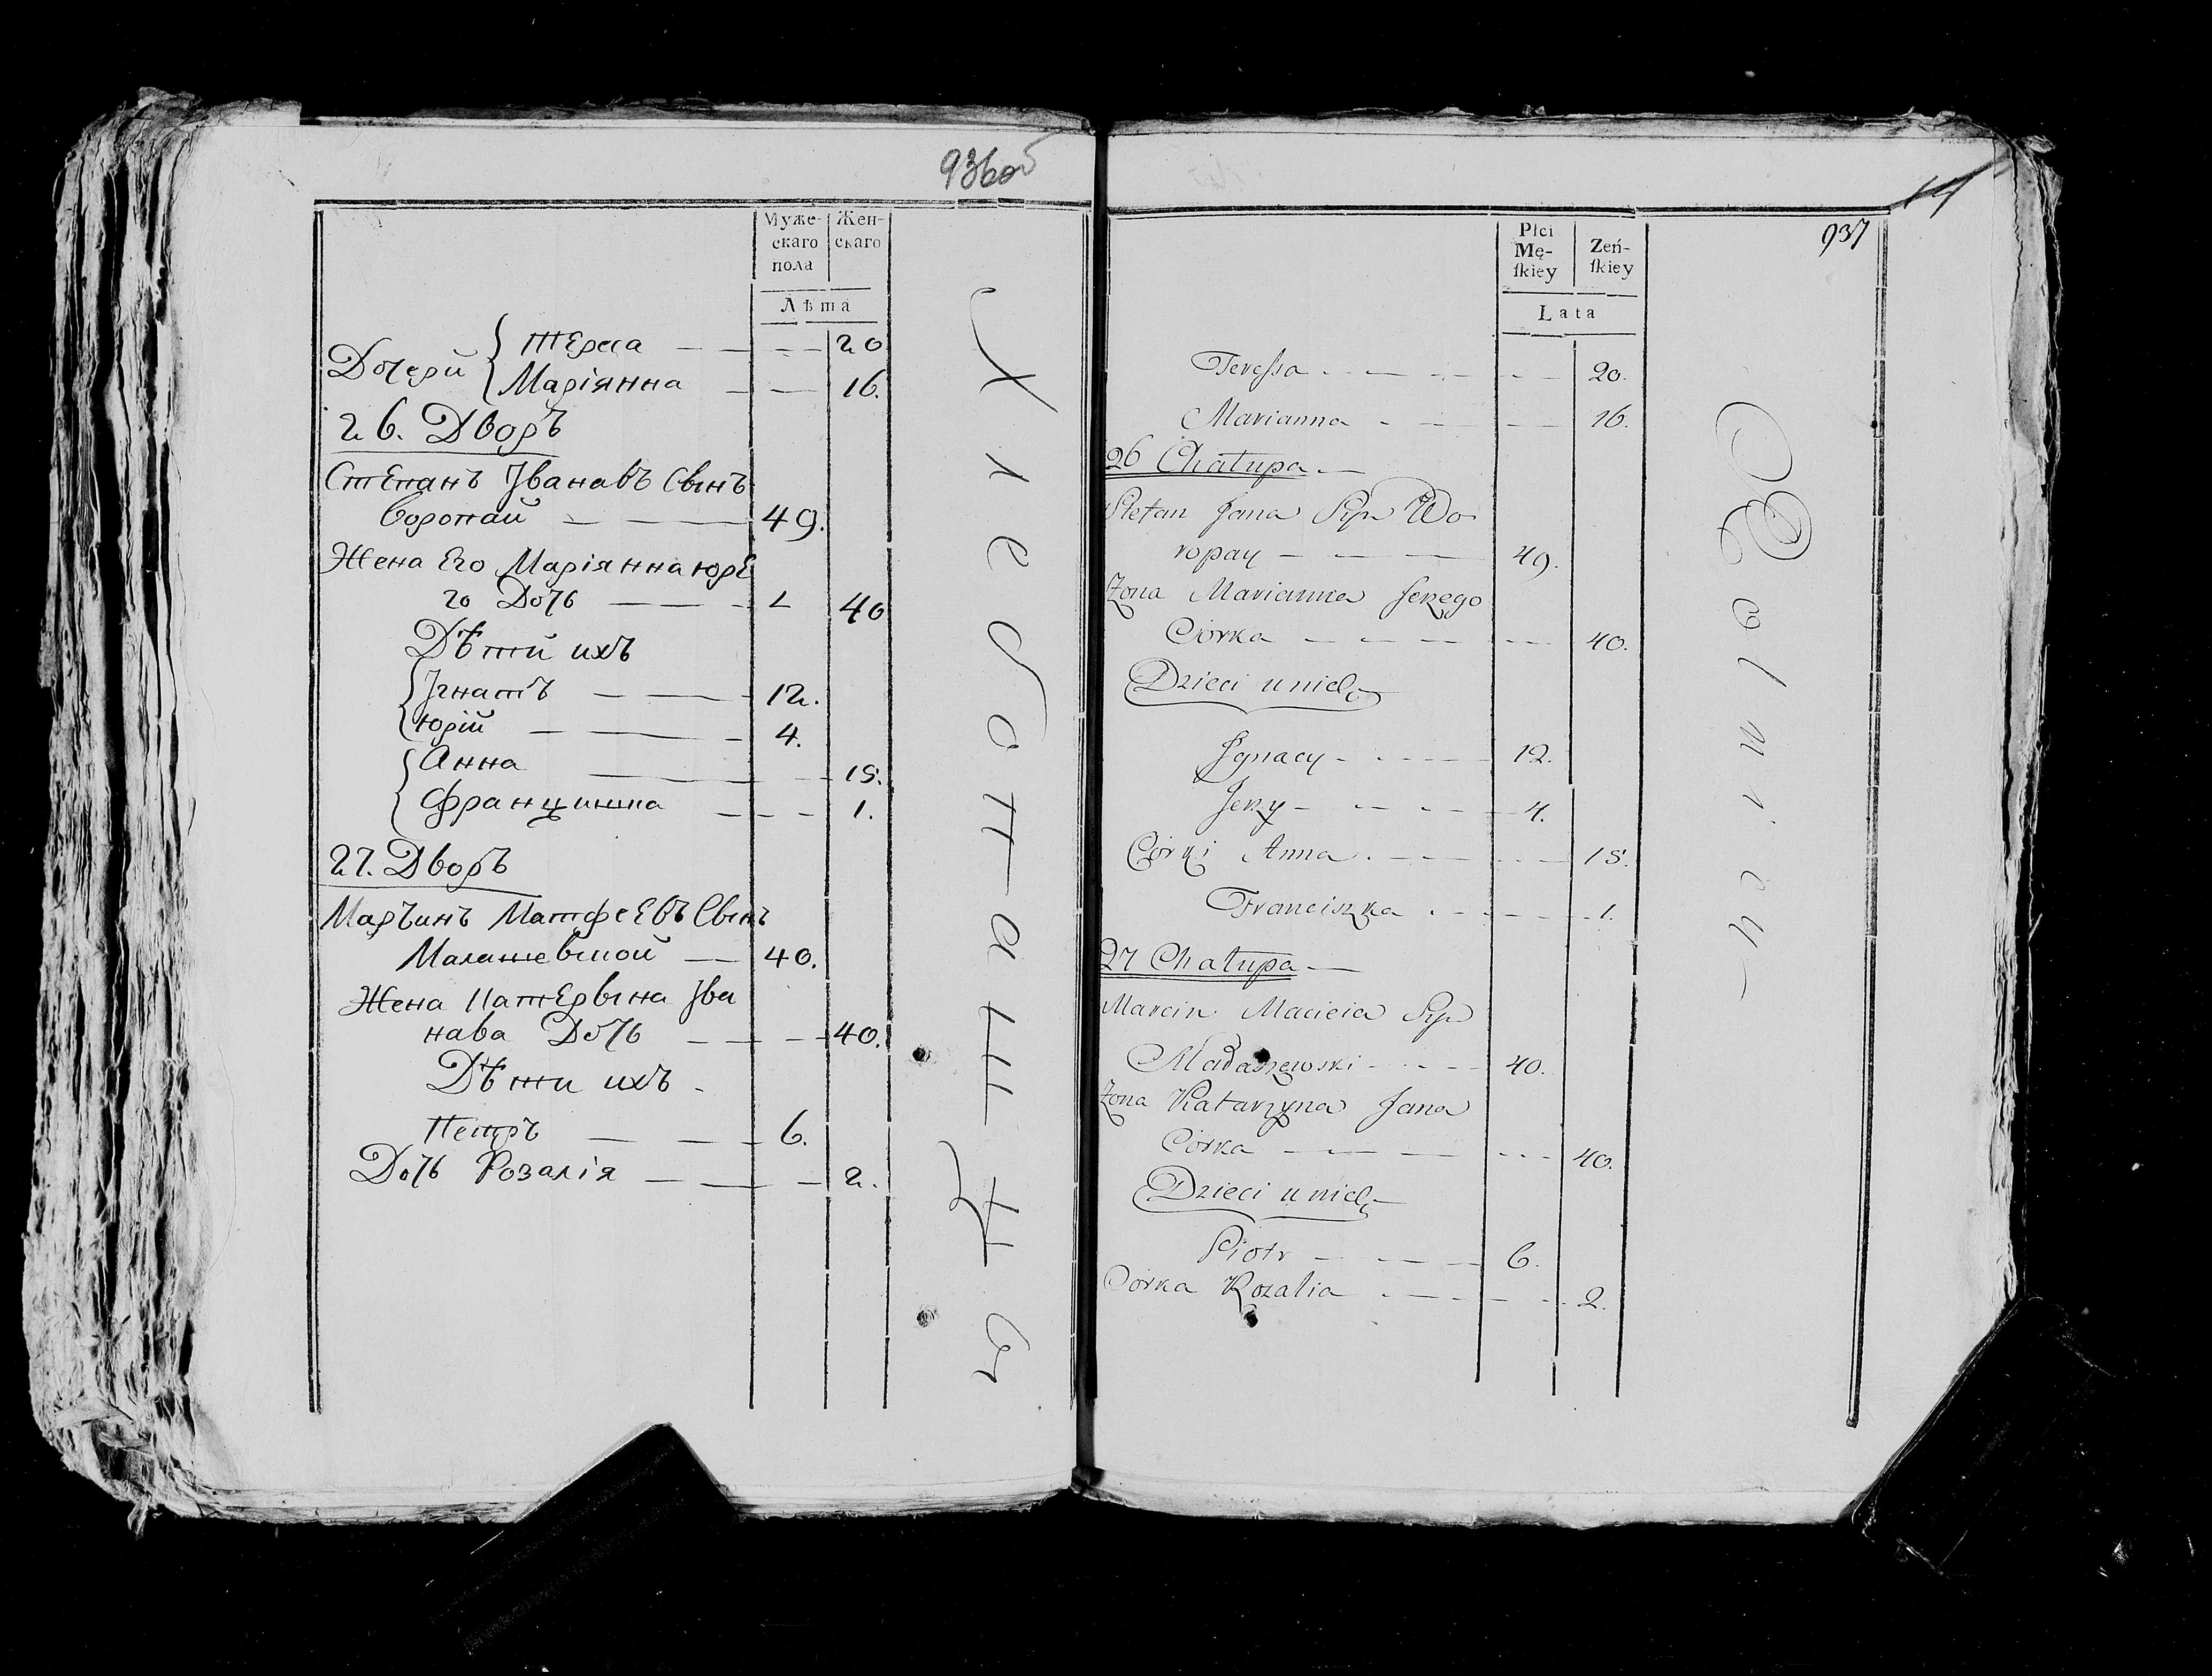 936об
Муже-
скаго
пола
Жен-
скаго
Лѣта
Дочери
Тереса 20
Маріянна 16.
26. Дворъ
Степанъ Іванавъ Сынъ
Воропай 49.
Жена Его Маріянна Юрe
го Дочь 40
Дѣти ихъ
Ігнатъ 12.
Юрій 4.
Анна 15.
Францишка 1.
27. Дворъ
Марцинъ Матфеевъ Сынъ
Малашевской 40.
Жена Катерына Іва
нава Дочь 40.
Дѣти ихъ
Петръ 6.
Дочь Розалія 2.
Хлебопашцы
937
Płci
Mę-
ſkiey
Zeń-
ſkiey
Lata
Tereſsa 20.
Marianna 16.
26 Chałupa
Stefan Jana Syn Wo
ropay 49.
Zona Marianna Jerzego
Córka 40.
Dzieci u nich
Jgnacy 12.
Jerzy 4.
Córki Anna 15.
Franciszka 1.
27 Chałupa
Marcin Macieia Syn
Małaszewski 40.
Zona Katarzyna Jana
Córka 40.
Dzieci u nich
Piotr 6.
Córka Rozalia 2.
Rolnicy